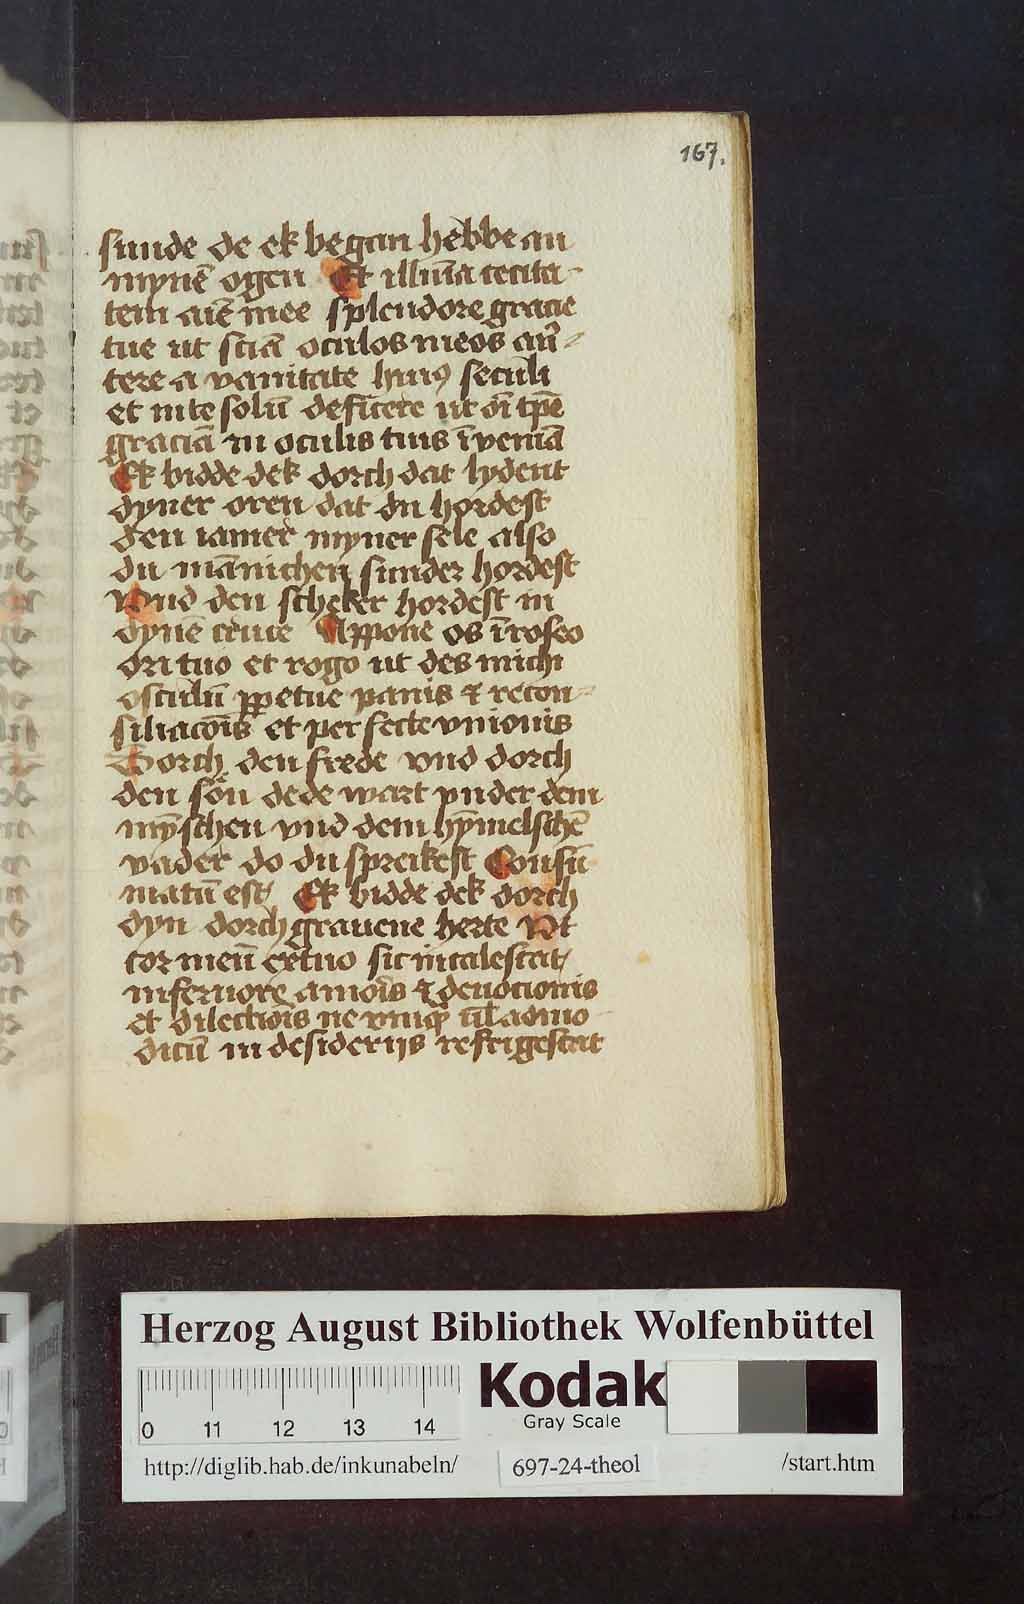 167.
sunde de ek began hebbe an
mynē ogen Et illūīa cecita-
tem aīē mee splendore gracie
tue ut sciā oculos meos au̅-
tere a vanitate huiꝰ seculi
et in te solū deficere ut oī tp̄e
graciā in oculis tuis īveniā
Ek bidde dek dorch dat lydent
dyner oren dat du hordest
den iamer myner sele also
du mānichen sunder hordest
Vnd den scheker hordest in
dynē cruce Appone os ī roseo
ori tuo et rogo ut des michi
osculū ꝑpetue pacis et recon-
siliacōīs et perfecte vnionis
Dorch den frede vnd dorch
den sōn dede wart vnder dem
mȳschen vnd dem hȳmelschē
vader do du spreikest Consū
matū est Ek bidde dek dorch
dyn dorch gravene herte Vt
cor meū ex tuo sic incalescat
in feruore amoris et deuocionis
et dilectiōīs ne vmqȝ ul̄ ad mo-
dicū in desideriis refrigescat
Herzog August Bibliothek Wolfenbüttel
0 11 12 13 14
Kodak
Gray Scale
http://diglib.hab.de/inkunabeln/ 697-24-theol /start.htm